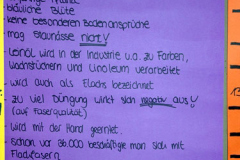 bläuliche Blüte
keine besonderen Bodenansprüche
mag Staunässe nicht!
Leinöl wird in der Industrie u.a. zu Farben,
Wachstüchern und Linoleum verarbeitet
wird auch als Flachs bezeichnet
zu viel Düngung wirkt sich negativ aus!
(auf Faserqualität)
Wird mit der Hand geerntet.
Schon vor 36.000 beschäftige man sich mit
Flachsfasern